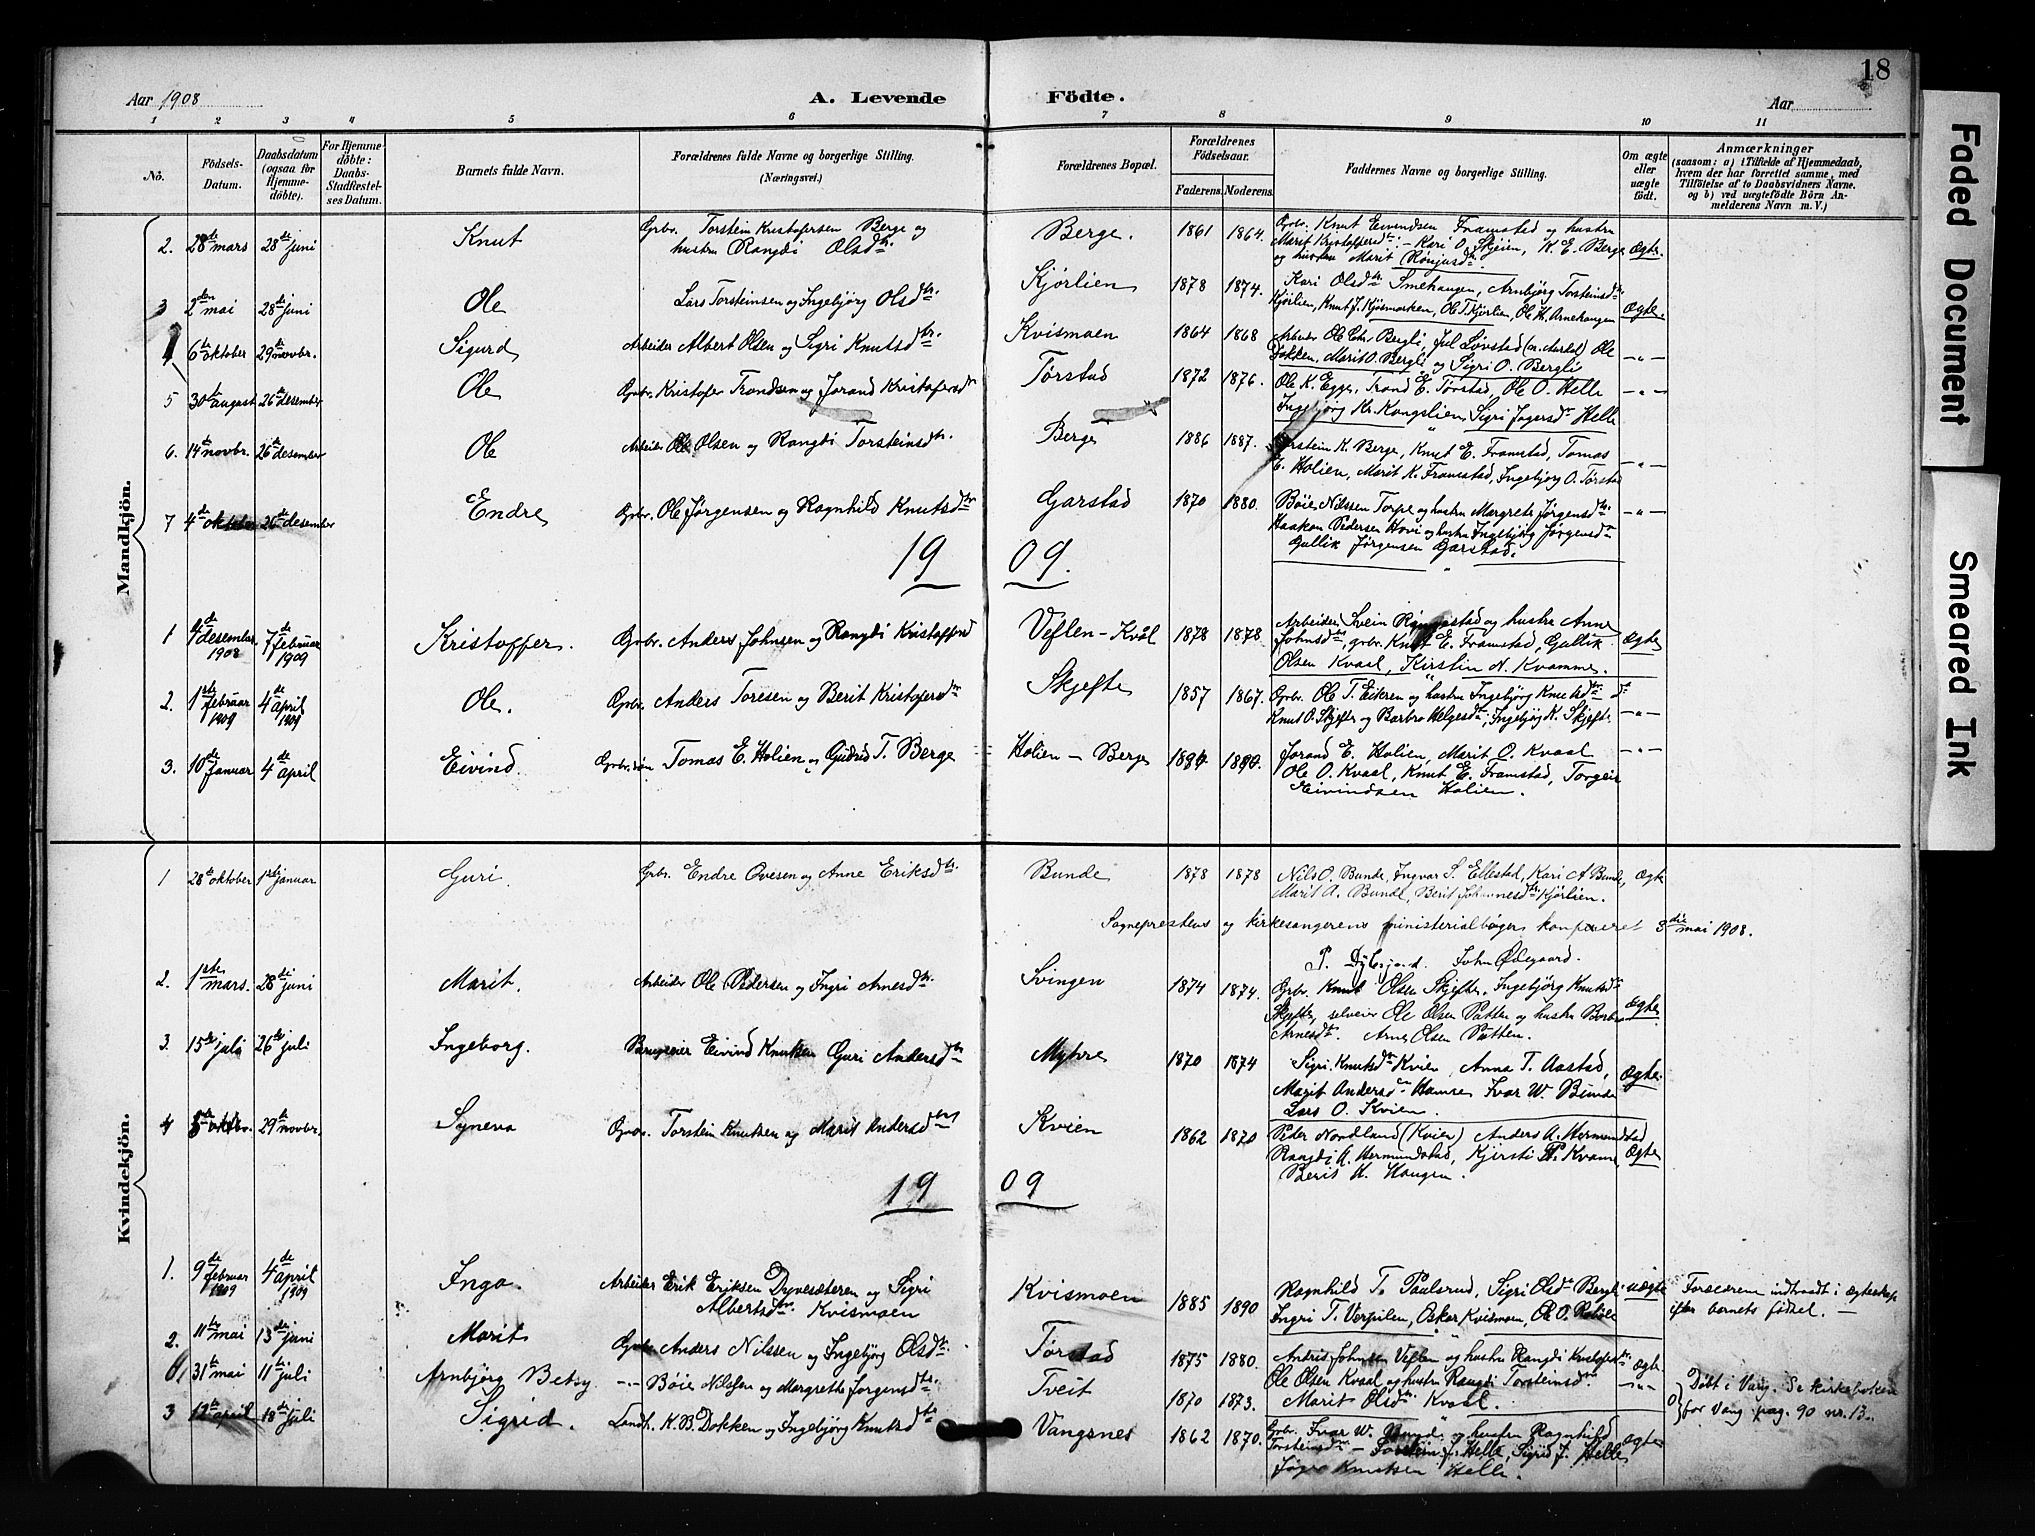 18
Aar 1908
A. Levende Födte.
Aar
1 2 3 4 5 6 7 8 9 10 11
No.
Födsels-Datum.
Daabsdatum (ogsaa for Hjemmedöbte).
For Hjemmedöbte: Daabs-Stadfæstelses Datum.
Barnets fulde Navn.
Forældrenes fulde Navne og borgerlige Stilling.
(Næringsvei.)
Forældrenes Bopæl.
Forældrenes Födselsaar.
Faderens. Moderens.
Faddernes Navne og borgerlige Stilling.
Om ægte eller uægte födt.
Anmærkninger
(saasom: a) i Tilfælde af Hjemmedaab,
hvem der har forrettet samme, med
Tilföielse af to Daabsvidners Navne.
og b) ved uægtefödte Börn Anmelderens Navn m. V.)
Mandkjön.
2. 28de mars 28de juni Knut Grbr. Torstein Kristofersen Berge og hustru Rangdi Olsdtr. Berge. 1861 1864. Grbr. Knut Eivindsen Framstad og hustru
Marit Kristoffersdtr. - Kari O. Skjeien, K. E. Berge
og hustru Marit Rønjusdtr. Ægte.
3 2den mai 28de juni Ole Lars Torsteinsen og Ingebjørg Olsdtr. Kjørlien 1878 1874. Kari Olsdtr. Smehaugen, Arnbjørg Torsteinsdtr.
Kjørlien, Knut J. Kjøsmarken, Ole T. Kjørlien, Ole K. Arnehaugen Ægte.
4 6te oktober 29de novbr. Sigurd Arbeider Albert Olsen og Sigri Knutsdtr. Kvismoen 1864 1868 Arbeider Ole Chr. Bergli, Jul Løvstad Ole
Dokken, Marit O. Bergli og Sigri O. Bergli -"-
5 30te august 26de desember Ole Grbr. Kristofer Trondsen og Jorand Kristofersdtr Tørstad 1872 1876. Ole K. Egge, Trond E. Tørstad, Ole O. Helle
Ingebjørg Kr. Kongslien, Sigri Jogersdtr Helle -"-
6. 14de novbr. 26de desember Ole Arbeider Ole Olsen og Rangdi Torsteinsdtr. Berge 1886 1887. Torstein K. Berge, Knut E. Framstad, Tomas
E. Holien, Marit K. Framstad, Ingebjørg O. Tørstad -"-
7 4de oktober 26de desember Endre Grbr. Ole Jørgensen og Ragnhild Knutsdtr Garstad 1870 1880. Bøie Nilssen Torpe og hustru Margrete Jørgensdtr.
Haakon Pedersen Hovi og hustru Ingebjørg Jørgensdtr
Gullik Jørgensen Garstad. -"-
19 09.
1 4de desember 1908 7de februar 1909 Kristoffer. Grbr. Anders Johnsen og Rangdi Kristoffersd Veflen-Kvål 1878 1878. Arbeider Svein og hustru Anne
Johnsdtr, grbr. Knut E. Framstad, Gullik
Olsen Kvaal, Kirstin N. Kvamme. Ægte
2. 1ste februar 1909 4de april 1909 Ole. Grbr. Anders Toresen og Berit Kristofersdtr Skjefte 1857 1867. Grbr. Ole T. Eikeren og hustru Ingebjørg Knutsdtr
Knut O. Skjefte og Barbro Helgesdtr, Ingebjørg K. Skjefte. -"-
3. 10de januar 4de april Eivind. Grbr.søn Tomas E. Holien og Gudrid T. Berge Holien - Berge Jorand E. Holien, Marit O. Kvaal
Ole O. Kvaal, Knut E. Framstad, Torgeir
Eivindsen Holien. -"-
Kvindekjön.
1 28de oktober 1ste januar Guri. Grbr. Endre Ovesen og Anne Eriksdtr. Bunde 1878 1878 Nils O. Bunde, Ingvar S. Ellestad, Kari A Bunde,
Marit A. Bunde, Berit Johannesdtr Kjørlien. Ægte
Sogneprestens og kirkesangerens ministerialbøger konfereret 3die mai 1908.
P. John Ødegaard.
2. 1ste mars. 28de juni Marit. Arbeider Ole Pedersen og Ingri Arnesdtr. Svingen 1874 1874. Grbr. Knut Olsen Skjefte, Ingebjørg Knutsdtr
Skjefte, selveier Ole Olsen Patten og hustru Barbro
Arnesdtr. Arne Olsen Patten. Ægte
3. 15de juli 26de juli Ingeborg. Brugeier Eivind Knutsen Guri Andersdtr Myhre 1870 1874 Sigri Knutsdtr Kvien, Anna T. Aastad,
Marit Andersdtr Hamre Ivar W. Bunde
Lars O. Kvien. Ægte.
4 5te oktbr. 29de novbr. Syneva Grbr. Torstein Knutsen og Marit Andersdtr Kvien 1862 1870 Peder Nordland (Kvien) Anders A. Hermundstad
Rangdi A. Hermundstad, Kjersti P. Kvame
Berit K. Haugen. Ægte
19 09
1. 9de februar 1909 4de april 1909 Inga. Arbeider Erik Eriksen Dyvesæteren og Sigri
Albertsdtr. Kvismoen Kvismoen 1885 1890 Ragnhild T. Paulsrud, Sigri Olsdtr Bergli
Ingri T. Verpilen, Oskar Kvismoen, Ole O. uægte Forældrene indtraadt i ægteskap
efter barnets fødsel. -
2. 11te mai 13de juni Marit Grbr. Anders Nilssen og Ingebjørg Olsdtr. Tørstad 1875 1880. Andris Johnsen Veflen og hustru Rangdi
Ole Olsen Kvaal og hustru Rangdi Torsteinsdtr Ægte
31te mai 11te juli Arnbjørg Betsy -"- Bøie Nilssen og Margrethe Jørgensdtr. Tveit 1870 1873. Marit Olsdtr Kvaal. -"- Døbt i Vang. Se kirkeboken
for Vang pag. 90 nr. 13.
3 12te april 18de juli Sigrid. Landh. K. B. Dokken og Ingebjørg Knutsdtr Vangsnes 1862 1870. Grbr. Ivar W. Bunde og hustru Ragnhild
Torsteinsdtr - Torstein J. Helle, Sigrid J. Helle,
Knutsen Helle. Ægte
Faded Document
Smeared Ink